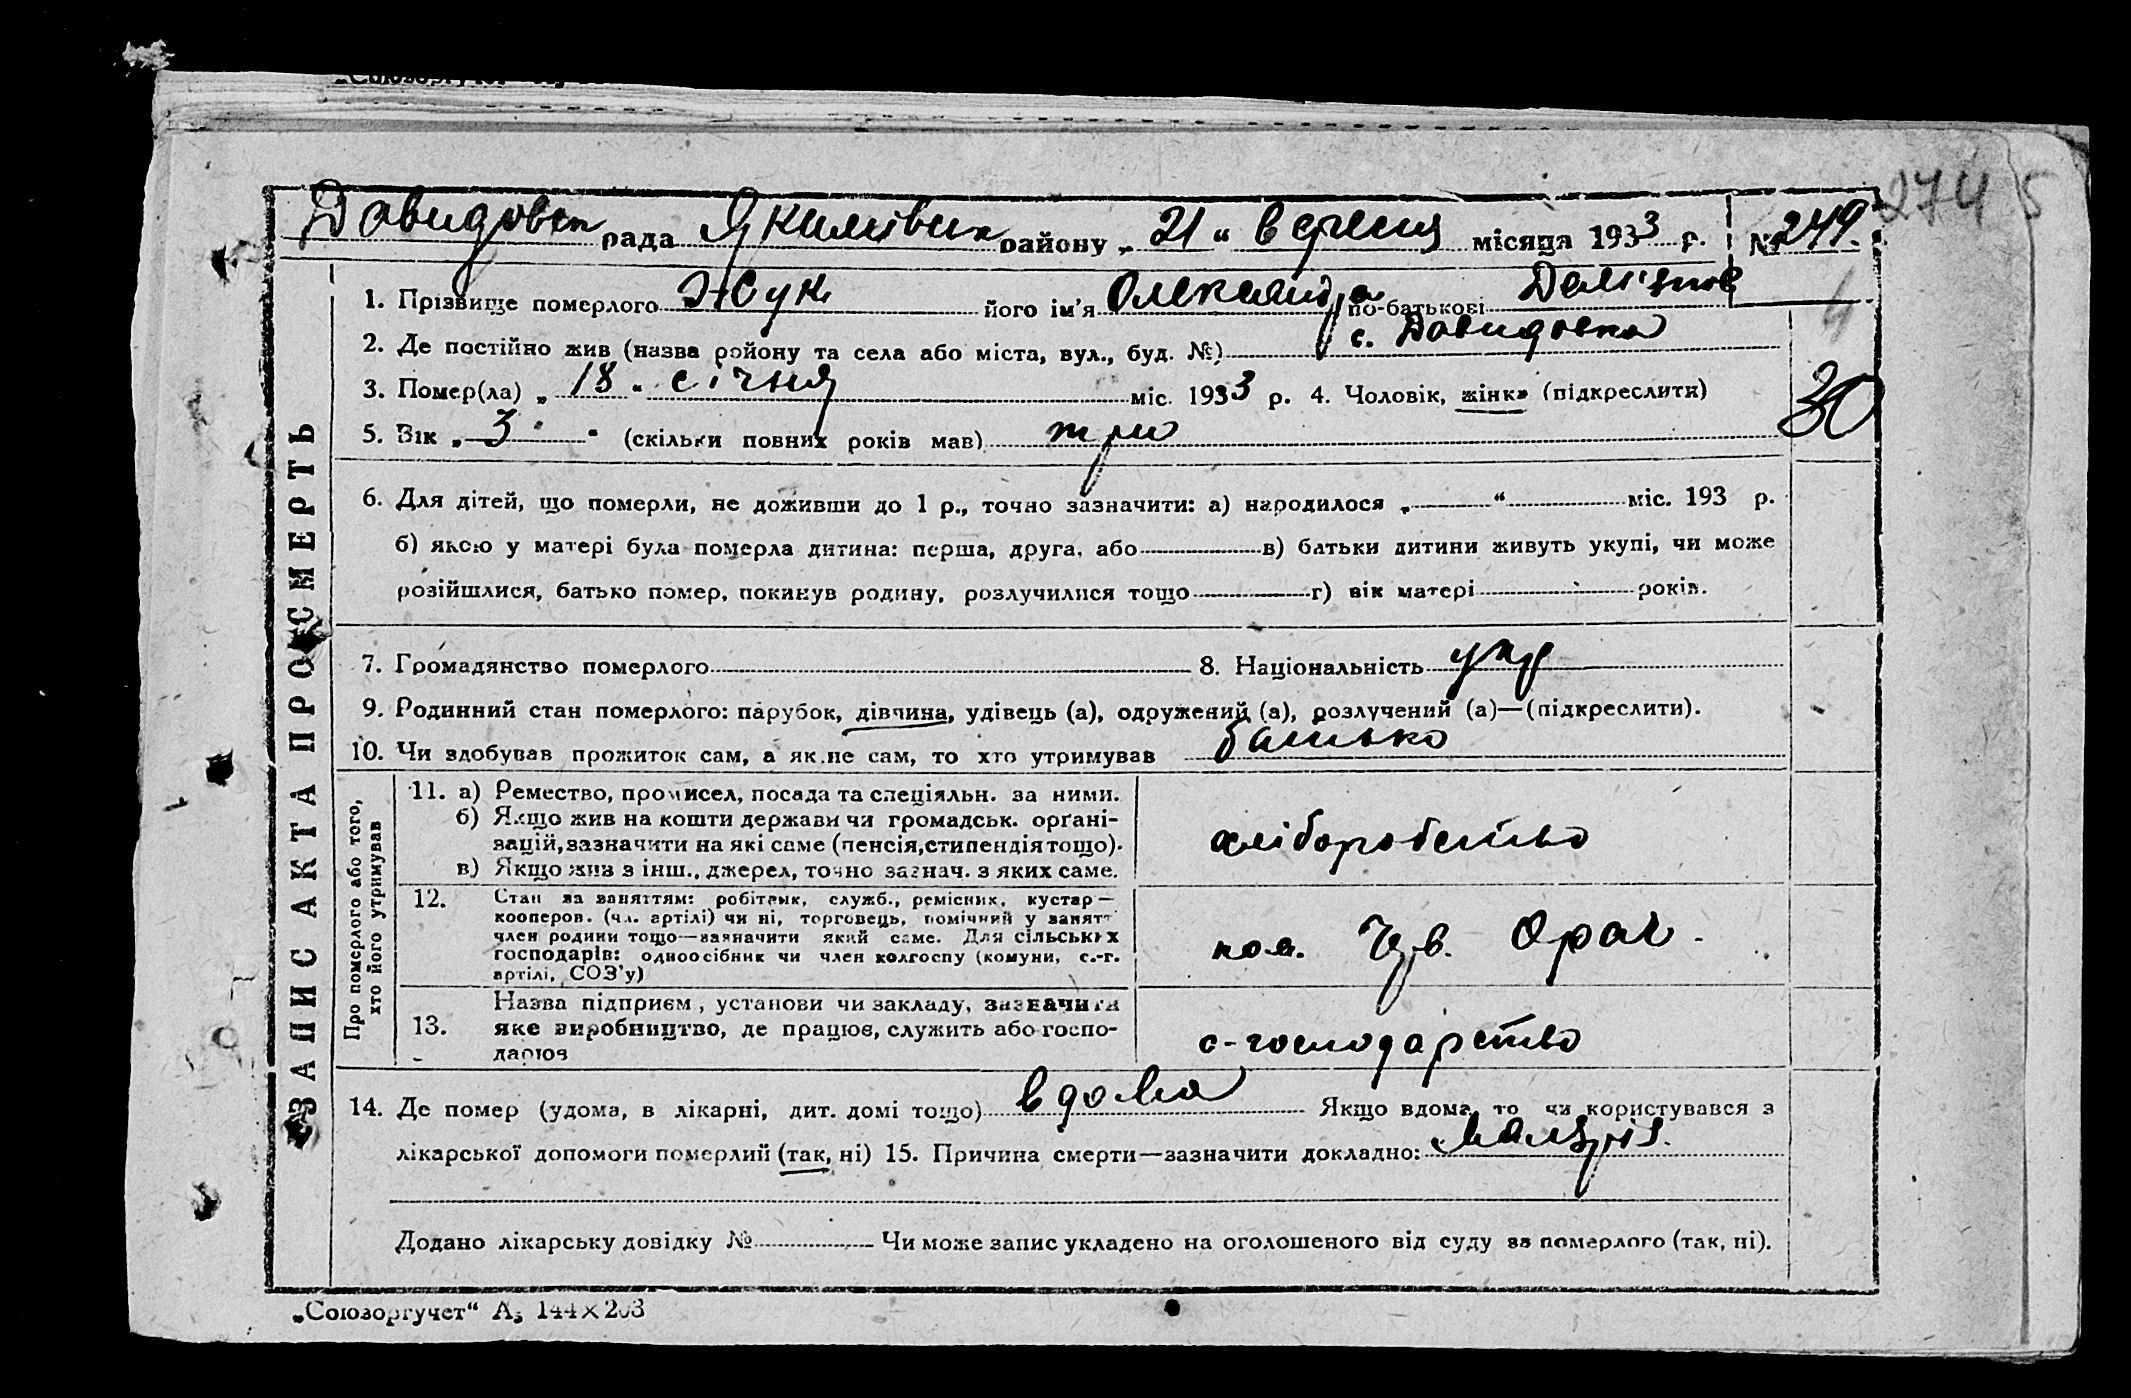 Давидовск рада Якимівськ району „21“ вересня місяця 1933 р. № 249.
274 5
1. Прізвище померлого Жук його ім'я Олександра по-батькові Дем'янов
2. Де постійно жив (назва району та села або міста, вул., буд. №) с. Давидовка
3. Помер(ла) „18“ січня міс. 1933 р. 4. Чоловік, жінка (підкреслити)
30
5. Вік „3“ (скільки повних років мав) три
6. Для дітей, що померли, не доживши до 1 р., точно зазначити: а) народилося „ “ міс. 193 р.
б) якою у матері була померла дитина: перша, друга, або в) батьки дитини живуть укупі, чи може
розійшлися, батько помер, покинув родину, розлучилися тощо г) вік матері років.
7. Громадянство померлого 8. Національність укр
9. Родинний стан померлого: парубок, дівчина, удівець (а), одружений (а), розлучений (а)—(підкреслити).
10. Чи здобував прожиток сам, а як не сам, то хто утримував батько
ЗАПИС АКТА ПРО СМЕРТЬ
Про померлого або того,
хто його утримував
11. а) Ремество, промисел, посада та спеціяльн. за ними.
б) Якщо жив на кошти держави чи громадськ. орґані-
зацій, зазначити на які саме (пенсія, стипендія тощо).
в) Якщо жив з інш., джерел, точно зазнач. з яких саме.
хліборобство
12. Стан за заняттям: робітник, служб., ремісник, кустар—
кооперов. (чл. артілі) чи ні, торговець, помічний у занятт
член родини тощо—зазначити який саме. Для сільських
господарів: одноосібник чи член колгоспу (комуни, с.-г.
артілі, СОЗ'у)
кол. Чрв. Орач.
13. Назва підприєм, установи чи закладу, зазначити
яке виробництво, де працює, служить або госпо-
дарює
с-господарство
14. Де помер (удома, в лікарні, дит. домі тощо) вдома Якщо вдома, то чи користувався з
лікарської допомоги померлий (так, ні) 15. Причина смерти—зазначити докладно: малярія.
Додано лікарську довідку № Чи може запис укладено на оголошеного від суду за померлого (так, ні).
„Союзоргучет“ А5 144×203